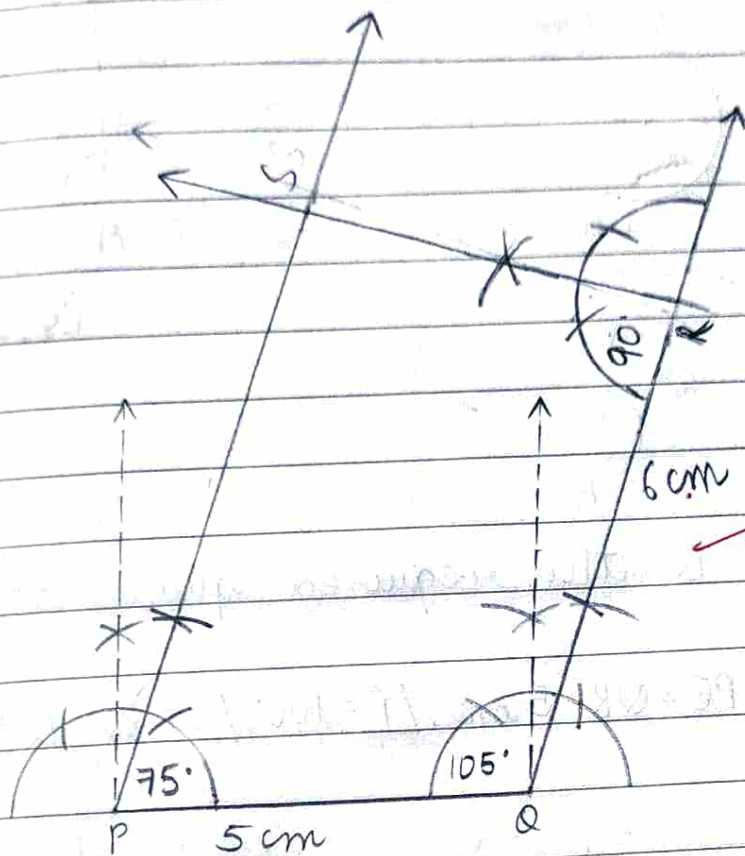 S
90°
R
6 cm
75°
105°
P
5 cm
Q